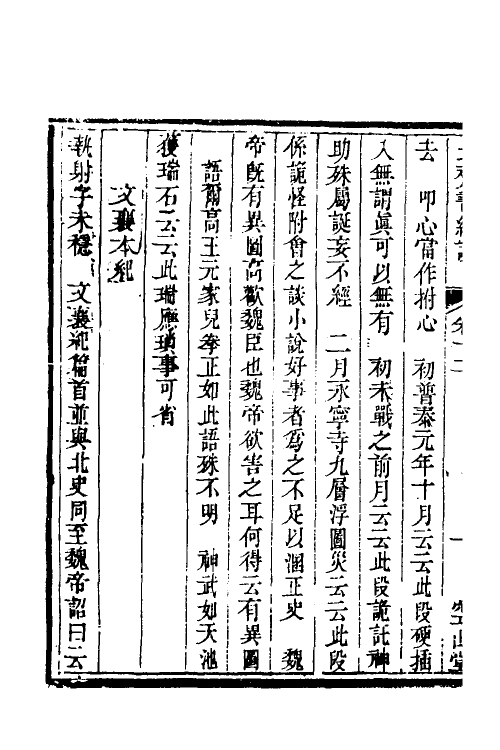 去　叩心當作拊心　初普泰元年十月云云此段硬插
入無謂眞可以無有　初未戰之前月云云此段詭託神
助殊屬誕妄不經　二月永寧寺九層浮圖災云云此段
係詭怪附會之談小說好事者爲之不足以溷正史　魏
帝旣有異圖高歡魏臣也魏帝欲害之耳何得云有異圖
語爾高王元家兒拳正如此語殊不明　神武如天池
獲瑞石云云此瑞應瑣事可省
文襄本紀
執射字未穩　文襄紀篇首並與北史同至魏帝詔曰云
卷十二
空山堂